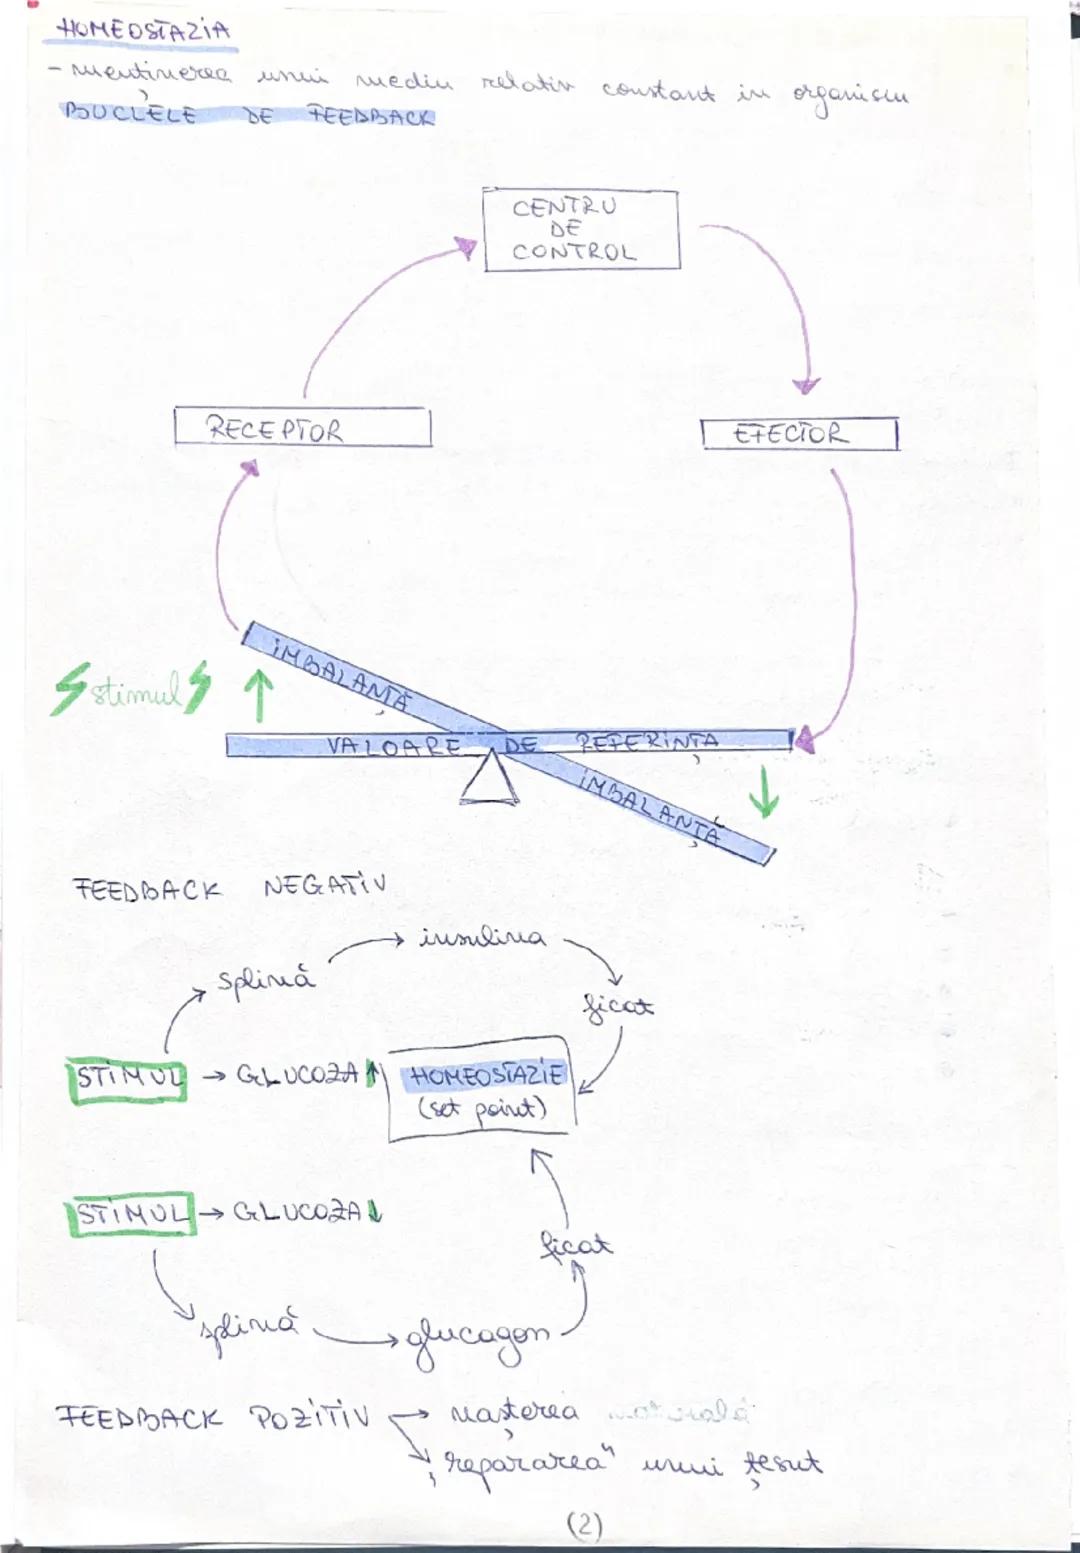 HOMEOSTAZIA
- menținerea unui mediu relativ constant in organism
BUCLELE DE FEEDBACK
CENTRU
DE
CONTROL
RECEPTOR
EFECTOR
stimul
IMBALANȚĂ
VALOARE DE REFERINȚA
IMBALANȚĂ
FEEDBACK NEGATIV
insulina
Splină
ficat
STIMUL → GLUCOZA ↑
HOMEOSTAZIE
(set point)
STIMUL → GLUCOZA ↓
ficat
splină → glucagon
FEEDBACK POZITIV → nașterea
„repararea" unui țesut
(2)